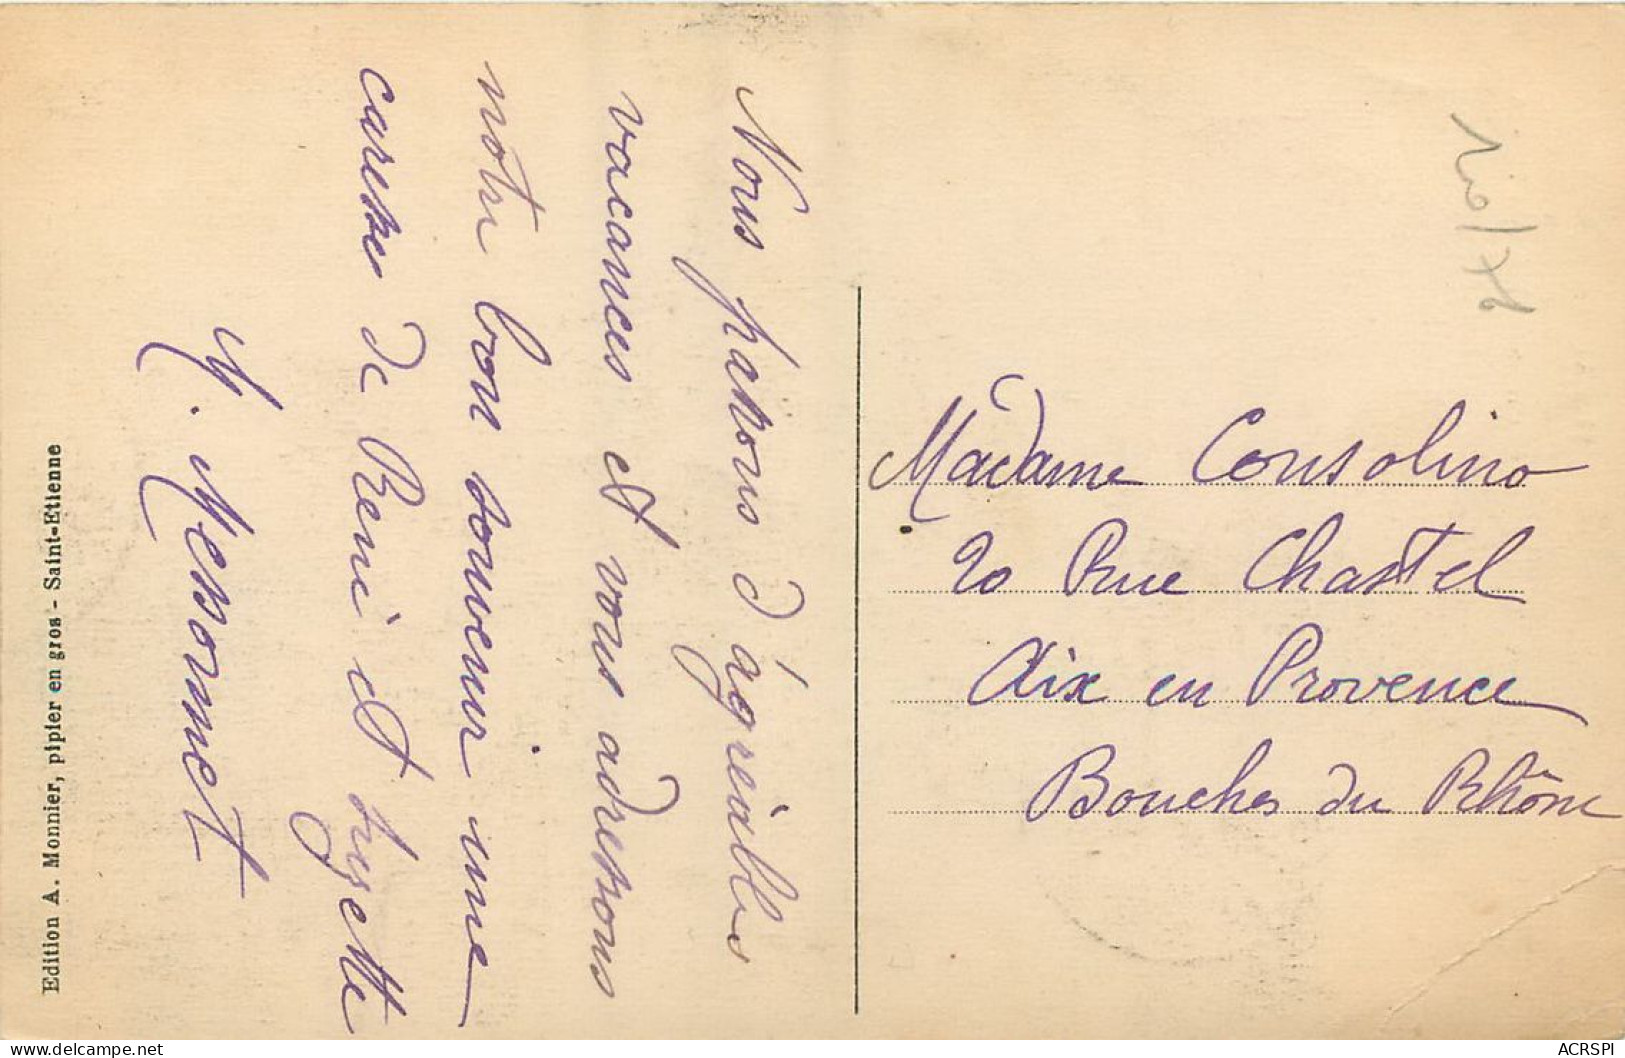 Nous passons d'agréables
vacances et vous adressons
notre bon souvenir une
caresse de René et Lysette
M. Messonnet
Edition A. Monnier, pipier en gros - Saint-Etienne
Madame Consolino
20 Rue Chastel
Aix en Provence
Bouches du Rhône
ACRSPI
www.delcampe.net